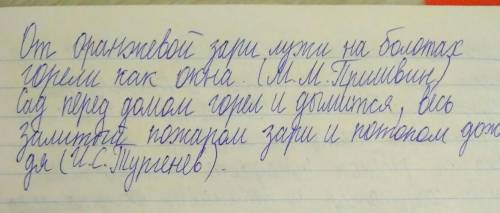 От оранжевой зари лужи на болотах
горели как окна. (М.М.Пришвин)
Сад перед домом горел и дымился, весь
залитый пожаром зари и потопом дож
дя (И.С.Тургенев).